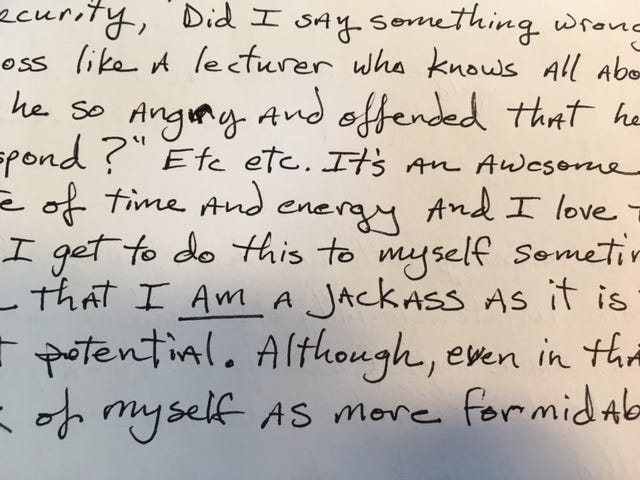 ecurity, "Did I say something wrong
oss like A lecturer who knows All Abo
he so Angry And offended that he
spond?" Etc etc. It's An Awesome
e of time And energy And I love t
I get to do this to myself sometim
that I Am A JACKASS AS it is
t potential. Although, even in thA
of myself AS more formidAb